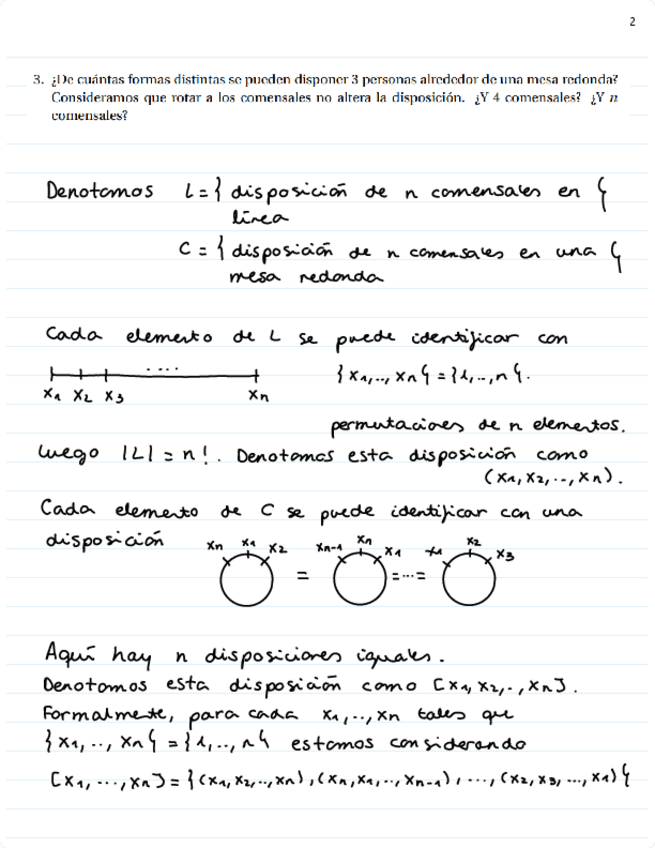 2
3. ¿De cuántas formas distintas se pueden disponer 3 personas alrededor de una mesa redonda?
Consideramos que rotar a los comensales no altera la disposición. ¿Y 4 comensales? ¿Y n
comensales?
Denotamos L = { disposición de n comensales en }
línea
C = { disposición de n comensales en una }
mesa redonda
Cada elemento de L se puede identificar con
.... {x1,..,xn} = {1,..,n}.
x1 x2 x3 xn
permutaciones de n elementos.
Luego |L| = n!. Denotamos esta disposición como
(x1,x2,..,xn).
Cada elemento de C se puede identificar con una
disposición xn x1 x2 = xn-1 xn x1 =...= x1 x2 x3
Aquí hay n disposiciones iguales.
Denotamos esta disposición como [x1,x2,.,xn].
Formalmente, para cada x1,..,xn tales que
{x1,..,xn} = {1,..,n} estamos considerando
[x1,...,xn] = {(x1,x2,..,xn),(xn,x1,..,xn-1),...,(x2,x3,...,x1)}